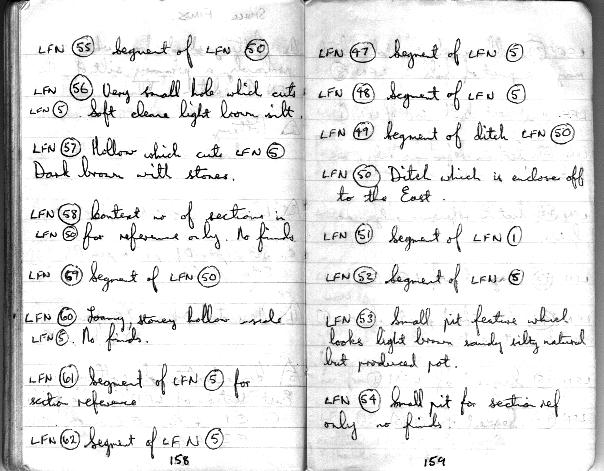 LFN 55 Segment of LFN 50
LFN 56 Very small hole which cuts
LFN 5. Soft cleane light brown silt.
LFN 57 Hollow which cuts LFN 5
Dark brown with stones.
LFN 58 Context no of sections in
LFN 50 for reference only. No finds
LFN 59 Segment of LFN 50
LFN 60 Loamy stoney hollow inside
LFN 5. No finds.
LFN 61 Segment of LFN 5 for
section reference
LFN 62 Segment of LFN 5
158
LFN 47 Segment of LFN 5
LFN 48 Segment of LFN 5
LFN 49 Segment of ditch LFN 50
LFN 50 Ditch which is enclose off
to the East.
LFN 51 Segment of LFN 1
LFN 52 Segment of LFN 5
LFN 53 Small pit feature which
looks light brown sandy silty natural
but produced pot.
LFN 54 Small pit for section ref
only no finds
159